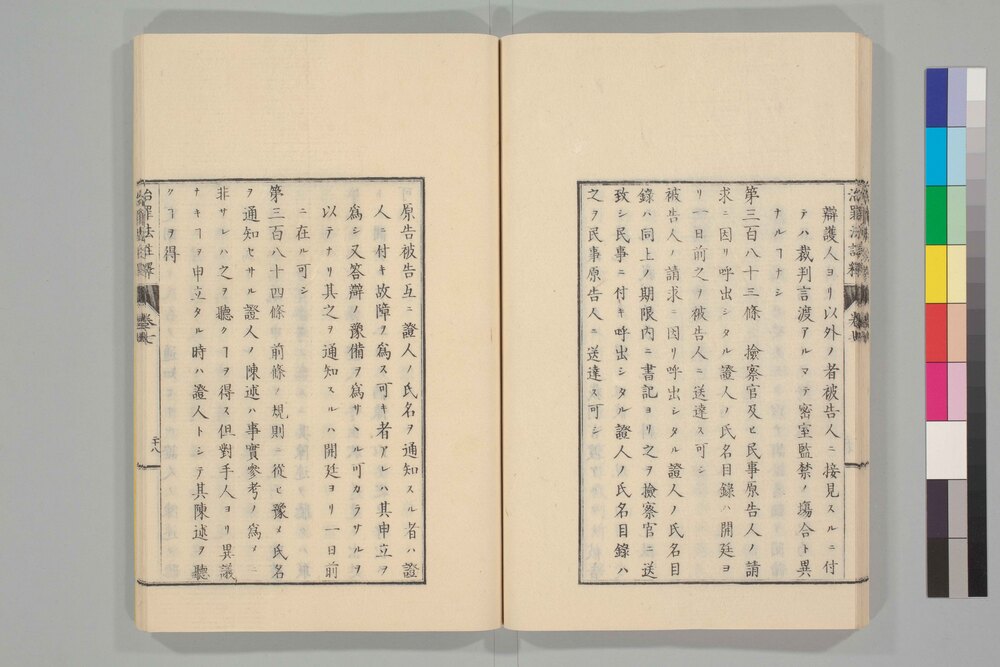 辯護人ヨリ以外ノ者被告人ニ接見スルニ付
テハ裁判言渡アルマテ密室監禁ノ塲合ト異
ナルヿナシ
第三百八十三條　撿察官及ヒ民事原告人ノ請
求ニ因リ呼出シタル證人ノ氏名目錄ハ開廷ヨ
リ一日前之ヲ被告人ニ送達ス可シ
被告人ノ請求ニ因リ呼出シタル證人ノ氏名目
錄ハ同上ノ期限內ニ書記ヨリ之ヲ撿察官ニ送
致シ民事ニ付キ呼出シタル證人ノ氏名目錄ハ
之ヲ民事原告人ニ送達ス可シ
原告被告互ニ證人ノ氏名ヲ通知スル者ハ證
人ニ付キ故障ヲ爲ス可キ者アレハ其申立ヲ
爲シ又答辯ノ豫備ヲ爲サヽル可カラサルヲ
以テナリ其之ヲ通知スルハ開廷ヨリ一日前
ニ在ル可シ
第三百八十四條　前條ノ規則ニ從ヒ豫メ氏名
ヲ通知セサル證人ノ陳述ハ事實參考ノ爲メニ
非サレハ之ヲ聽クヿヲ得ス但對手人ヨリ異議
ナキヿヲ申立タル時ハ證人トシテ其陳述ヲ聽
クヿヲ得
治罪法註釋